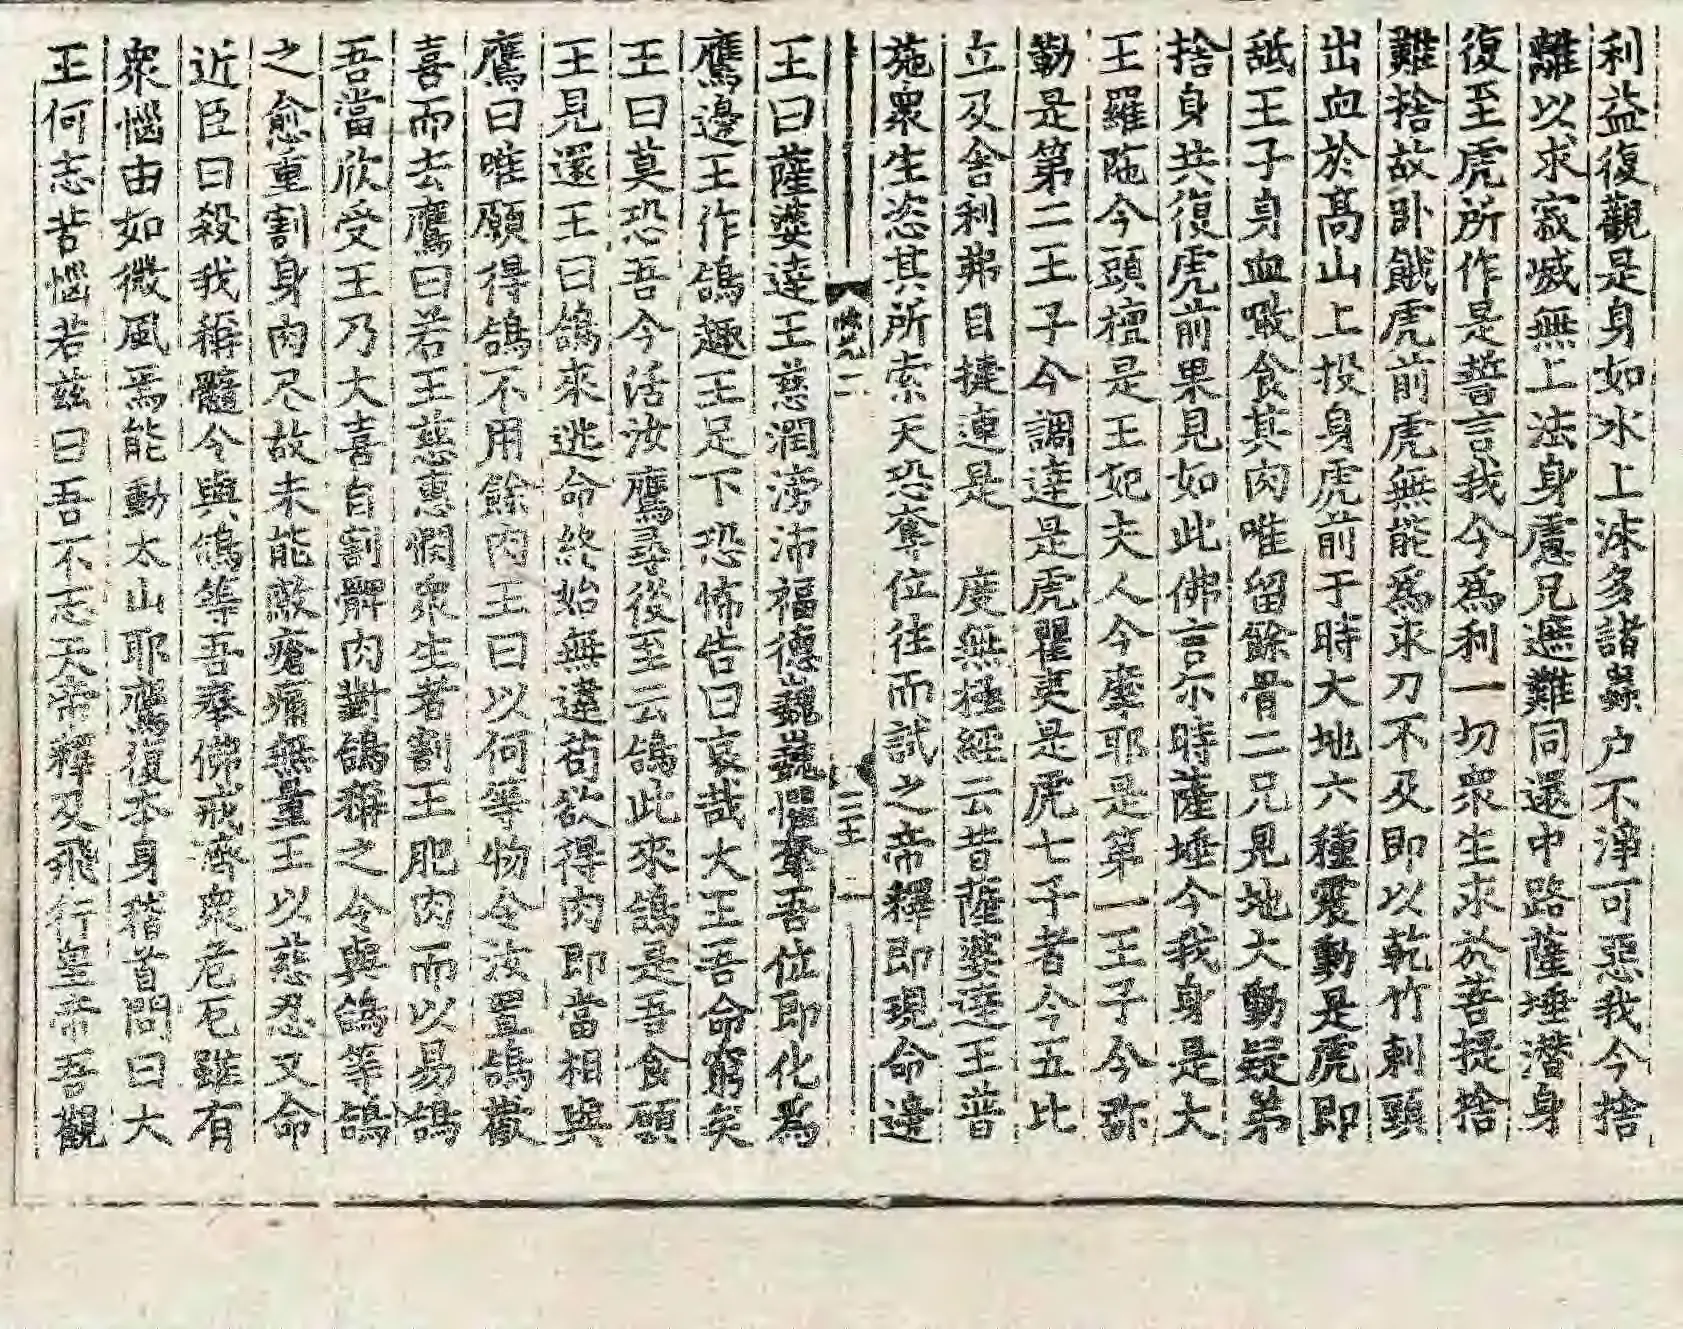 利益復觀是身如水上沫多諸蟲户不淨可惡我今捨
離以求寂滅無上法身慮兄遮難同還中路薩埵潛身
復至虎所作是誓言我今爲利一切衆生求於菩提捨
難捨故卧餓虎前虎無能爲求刀不及即以乾竹刺頸
出血於髙山上投身虎前于時大地六種震動是虎即
舐王子身血噉食其肉唯留餘骨二兄見地大動疑弟
捨身共復虎前果見如此佛言尔時薩埵今我身是大
王羅陁今頭檀是王妃夫人今摩耶是第一王子今弥
勒是第二王子今調達是虎瞿夷是虎七子者今五比
立及舍利弗目揵連是　度無極經云昔薩婆達王普
施衆生恣其所索天恐奪位往而試之帝釋即現命邊
二 三王 一
王曰薩婆達王慈潤滂沛福德巍巍懼奪吾位即化爲
鷹邊王作鴿趣王足下恐怖告曰哀哉大王吾命窮矣
王曰莫恐吾今活汝鷹尋後至云鴿此來鴿是吾食願
王見還王曰鴿來逃命終始無違苟欲得肉即當相與
鷹曰唯願得鴿不用餘肉王曰以何等物令汝置鴿歡
喜而去鷹曰若王慈惠憫衆生者割王肥肉而以易鴿
吾當欣受王乃大喜自割髀肉對鴿稱之令與鴿等鴿
之愈重割身肉尽故未能敵瘡痛無量王以慈忍又命
近臣曰殺我稱髓令與鴿等吾奉佛戒齊衆危厄雖有
衆惱由如微風焉能動太山耶鷹復本身稽首問曰大
王何志苦惱若兹曰吾不志天帝釋及飛行皇帝吾觀